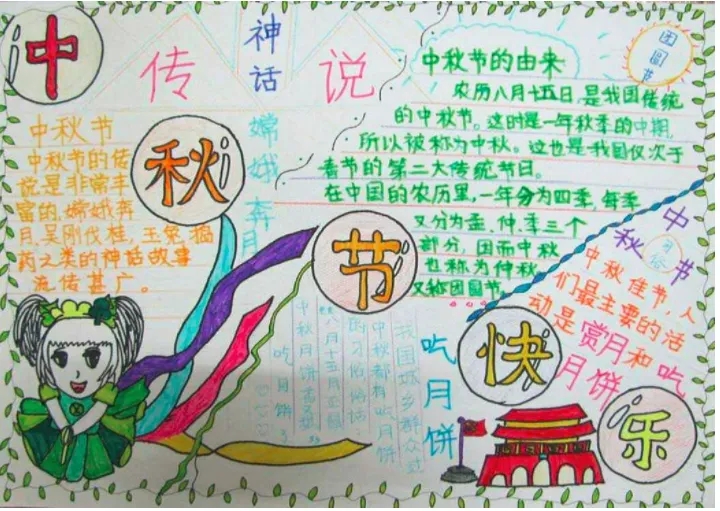 中
秋
节
快
乐
传
神话
说
嫦娥奔月
团圆节
中秋节
中秋节的传
说是非常丰
富的,嫦娥奔
月,吴刚伐桂,玉兔捣
药之类的神话故事
流传甚广。
中秋节的由来
农历八月十五日,是我国传统
的中秋节。这时是一年秋季的中期,
所以被称为中秋。过也是我国仅次于
春节的第二大传统节日。
在中国的农历里,一年分为四季,每季
又分为孟,仲,季三个
部分,因而中秋
也称为仲秋
又称团圆节。
中秋节
习俗
中秋佳节,人
们最主要的活
动是赏月和吃
月饼
吃月饼
我国城乡群众过
中秋都有吃月饼
的习俗俗话
八月十五月正圆
中秋月饼香又甜"
吃月饼